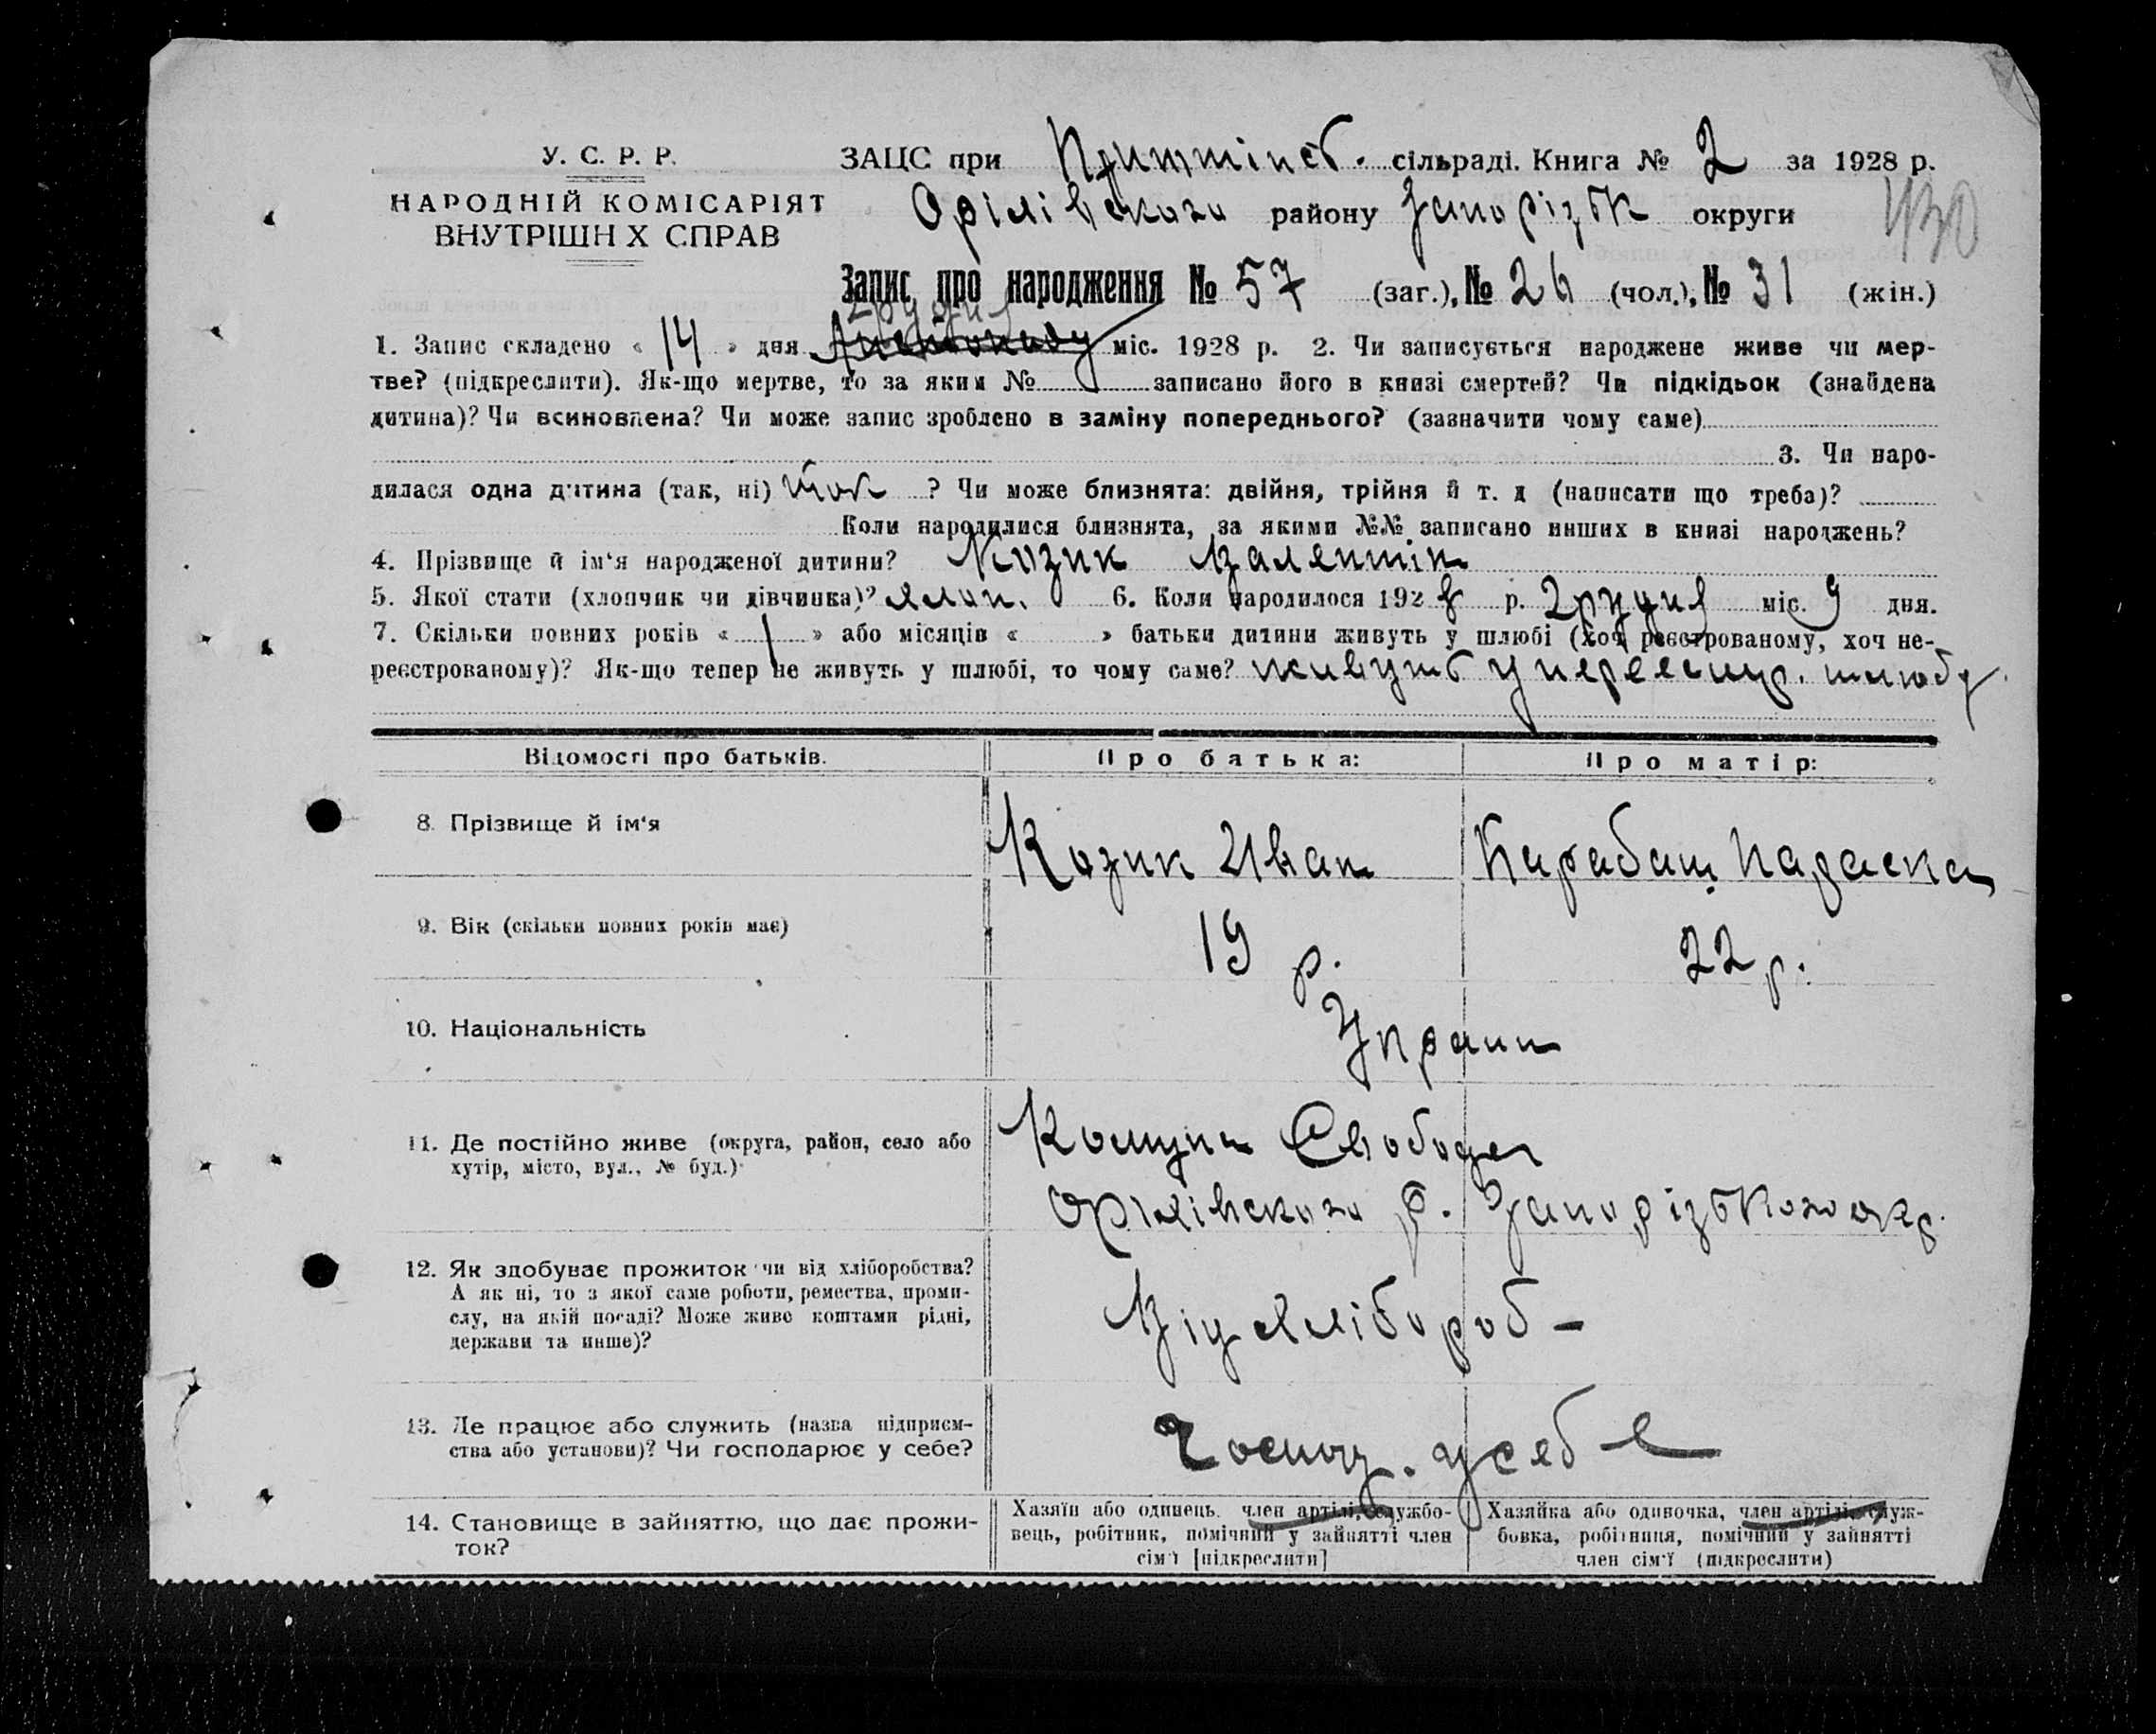 У. С. Р. Р.
НАРОДНІЙ КОМІСАРІЯТ
ВНУТРІШН Х СПРАВ
ЗАЦС при сільраді. Книга № 2 за 1928 р.
Орілівского району Запорізьк округи
430
Запис про народження № 57 (заг.), № 26 (чол.), № 31 (жін.)
грудня
1. Запис складено « 14 » дня міс. 1928 р. 2. Чи записується народжене живе чи мер-
тве? (підкреслити). Як-що мертве, то за яким № записано його в книзі смертей? Чи підкідьок (знайдена
дитина)? Чи всиновлена? Чи може запис зроблено в заміну попереднього? (зазначити чому саме)
3. Чи наро-
дилася одна дитина (так, ні) так ? Чи може близнята: двійня, трійня й т. д (написати що треба)?
Коли народилися близнята, за якими №№ записано инших в книзі народжень?
4. Прізвище й ім'я народженої дитини? Козик Валентін
5. Якої стати (хлопчик чи дівчинка)? хлоп. 6. Коли народилося 1928 р. грудня міс. 9 дня.
7. Скільки повних років « 1 » або місяців « » батьки дитини живуть у шлюбі (хоч реєстрованому, хоч не-
реєстрованому)? Як-що тепер не живуть у шлюбі, то чому саме? живуть у шлюбу.
Відомості про батьків.
Про батька:
Про матір:
8. Прізвище й ім'я
Козик Иван
Карабаш Параска
9. Вік (скільки повних років має)
19 р.
22 р.
10. Національність
Украин
11. Де постійно живе (округа, район, село або
хутір, місто, вул., № буд.)
Комуна Свобода
Орілівского р. Запорізького окр.
12. Як здобуває прожиток чи від хліборобства?
А як ні, то з якої саме роботи, ремества, проми-
слу, на якій посаді? Може живе коштами рідні,
держави та инше)?
Від хлібороб-
13. Де працює або служить (назва підприєм-
ства або установи)? Чи господарює у себе?
Господ. у себе
14. Становище в зайняттю, що дає прожи-
ток?
Хазяїн або одинець. член артілі, службо-
вець, робітник, помічний у зайнятті член
сім'ї [підкреслити]
Хазяйка або одиночка, член артілі, служ-
бовка, робітниця, помічний у зайнятті
член сім'ї (підкреслити)